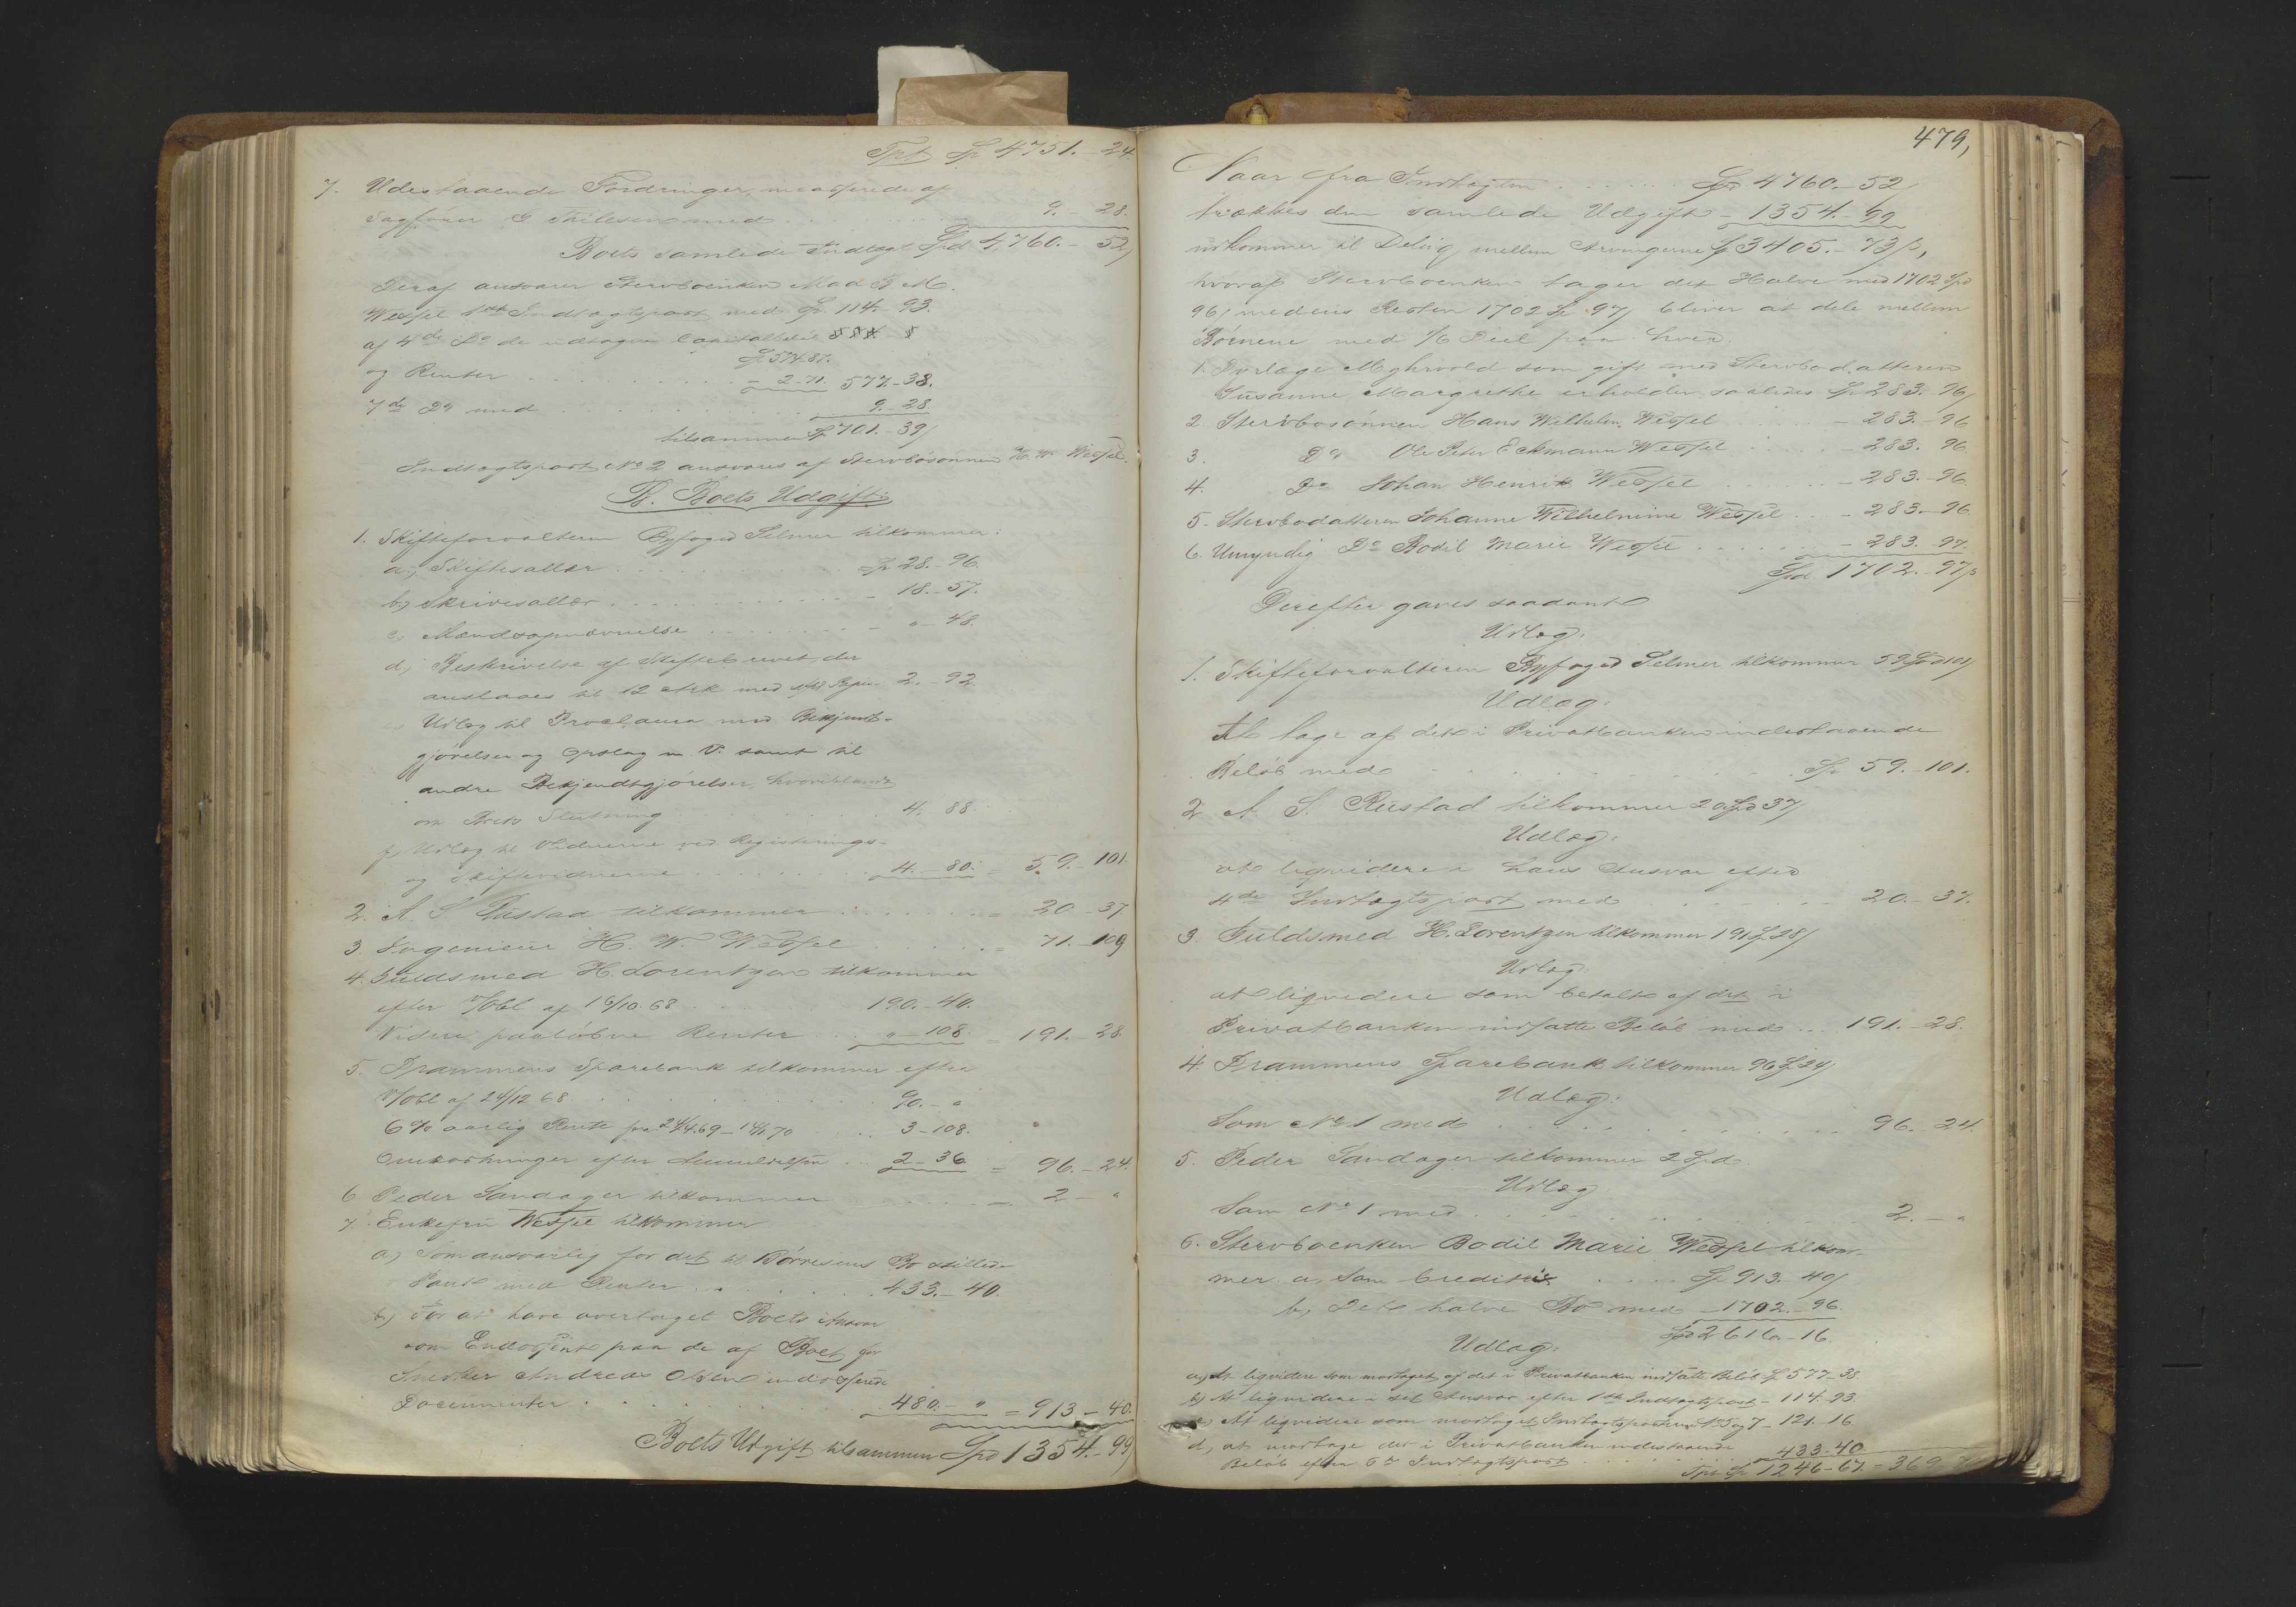 Tpt Sp 4751.-24
7. Udestaaende Fordringer, incasserede af
Sagfører med . . . 9.-28.
Boets samlede Indtægt Spd 4,760.-52/
Deraf ansvarer Stervboenken Mad B M.
Wessel 1ste Indtægtspost med Sp. 114.-93.
af 4de Do de udtagne Capitalbeløb
Sp 574.81.
og Renter . . . - 2-71. 577.-38.
7de Do med . . . 9.-28
tilsammen Sp 701.-39/
Indtægtspost No 2 ansvares af Stervbosønnen H. W. Wessel.
B. Boets Udgift:
1. Skifteforvalteren Byfoged Selmer tilkommer:
a., Skiftesallær . . . Sp 28.-96.
b, Skriversallær . . . - 18.-57.
c, Mændsopnævnelse . . . - "-48.
d, Beskrivelse af Skiftebrevet, der
anslaaes til 12 Ark med Papir 2.-92
e, Udlæg til Proclama med Bekjendt-
gjørelser og Opslag m. V. samt til
andre Bekjendtgjørelser, hvoriblandt
om Boets Slutning . . . 4.-88
f, Udlæg til Vidnerne ved Registrerings-
og Skiftevidnerne . . . 4.-80. = 59.-101.
2. A. S. Rustad tilkommer . . . = 20-37
3 Ingenieur H. W. Wessel . . . = 71.-109
4. Guldsmed H. Lorentzen tilkommer
efter V/Obl af 16/10.68 . . . 190.-40.
Videre paaløbne Renter . . . "-108. = 191.-28.
5. Drammens Sparebank tilkommer efter
V/obl af 24/12.68. . . . 90.-"
6% aarlig Rente fra 24/4.69-14/1.70 . . 3-108.
Omkostninger efter Anmeldelsen . . . 2-36 = 96.-24.
6 Peder Sandager tilkommer . . . - 2-"
7. Enkefru Wessel tilkommer
a., Som ansvarlig for det til Børresens Bo stillede
Pant med Renter . . . 433.-40.
b, For at have overtaget Boets Ansvar
som Endossent paa de af Boet for
Snedker Andreas Olsen endosserede
Documenter . . . 480.-" = 913-40.
Boets Udgift tilsammen Spd 1354.-99/
479,
Naar fra Indtægten . . . Spd 4760.-52/
trækkes den samlede Udgift - 1354.-99
udkommer til Deling mellem Arvingerne Sp 3405.-73/,
hvoraf Stervboenken tager det Halve med 1702 Spd
96/ medens Resten 1702 Sp 97/ bliver at dele mellem
Børnene med 1/6 Deel paa hver.
1. Myhrvold som gift med Stervbodatteren
Susanne Margrethe erholder saaledes Sp 283.-96/
2. Stervbosønnen Hans Wilhelm Wessel . . . - 283.-96
3. Do Ole Peter Eckmann Wessel . . . - 283.-96
4. Do Johan Henrik Wessel . . . - 283.-96.
5. Stervbodatteren Johanne Wilhelmine Wessel . . - 283.-96.
6. Umyndig Do Bodil Marie Wessel . . . - 283.-97.
Spd 1702.-97/
Derefter gaves saadant
Udlæg:
1. Skifteforvalteren Byfoged Selmer tilkommer 59 Spd 101/
Udlæg:
At tage af det i Privatbanken indestaaende
Beløb med . . . Sp 59.-101.
2 A. S. Rustad tilkommer 20 Spd 37/
Udlæg:
at liqvidere i hans Ansvar efter
4de Indtægtspost med . . . 20.-37.
3. Guldsmed H. Lorentzen tilkommer 191 Sp 28/
Udlæg:
at liqvidere som betalt af det i
Privatbanken indsatte Beløb med . . 191.-28.
4. Drammens Sparebank tilkommer 96 Sp 24/
Udlæg:
Som No 1 med . . . 96.-24.
5. Peder Sandager tilkommer 2 Spd.
Udlæg
Som No 1 med . . . 2.-"
6. Stervboenken Bodil Marie Wessel tilkom-
mer a, som Creditrix . . . Sp 913.-40/
b, Det halve Bo med - 1702.-96.
Spd 2616.-16.
Udlæg:
a., At liqvidere som modtaget af det i Privatbanken indsatte Beløb Sp 577-38
b, At liqvidere i det Ansvar efter 1ste Indtægtspost - 114-93
c, At liqvidere som modtaget Indtægtsposterne No 5 og 7 - 121.-16
d, at modtage det i Privatbanken indestaaende
Beløb efter 6te Indtægtspost . . . 433.-40
Tpt Sp 1246-67.- 369